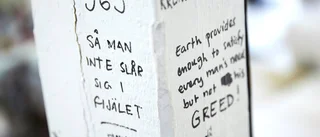 365
SÅ MAN
INTE SLÅR
SIG I
FIJÄLET
Earth provides
enough to satisfy
every man's need
but not his
GREED!